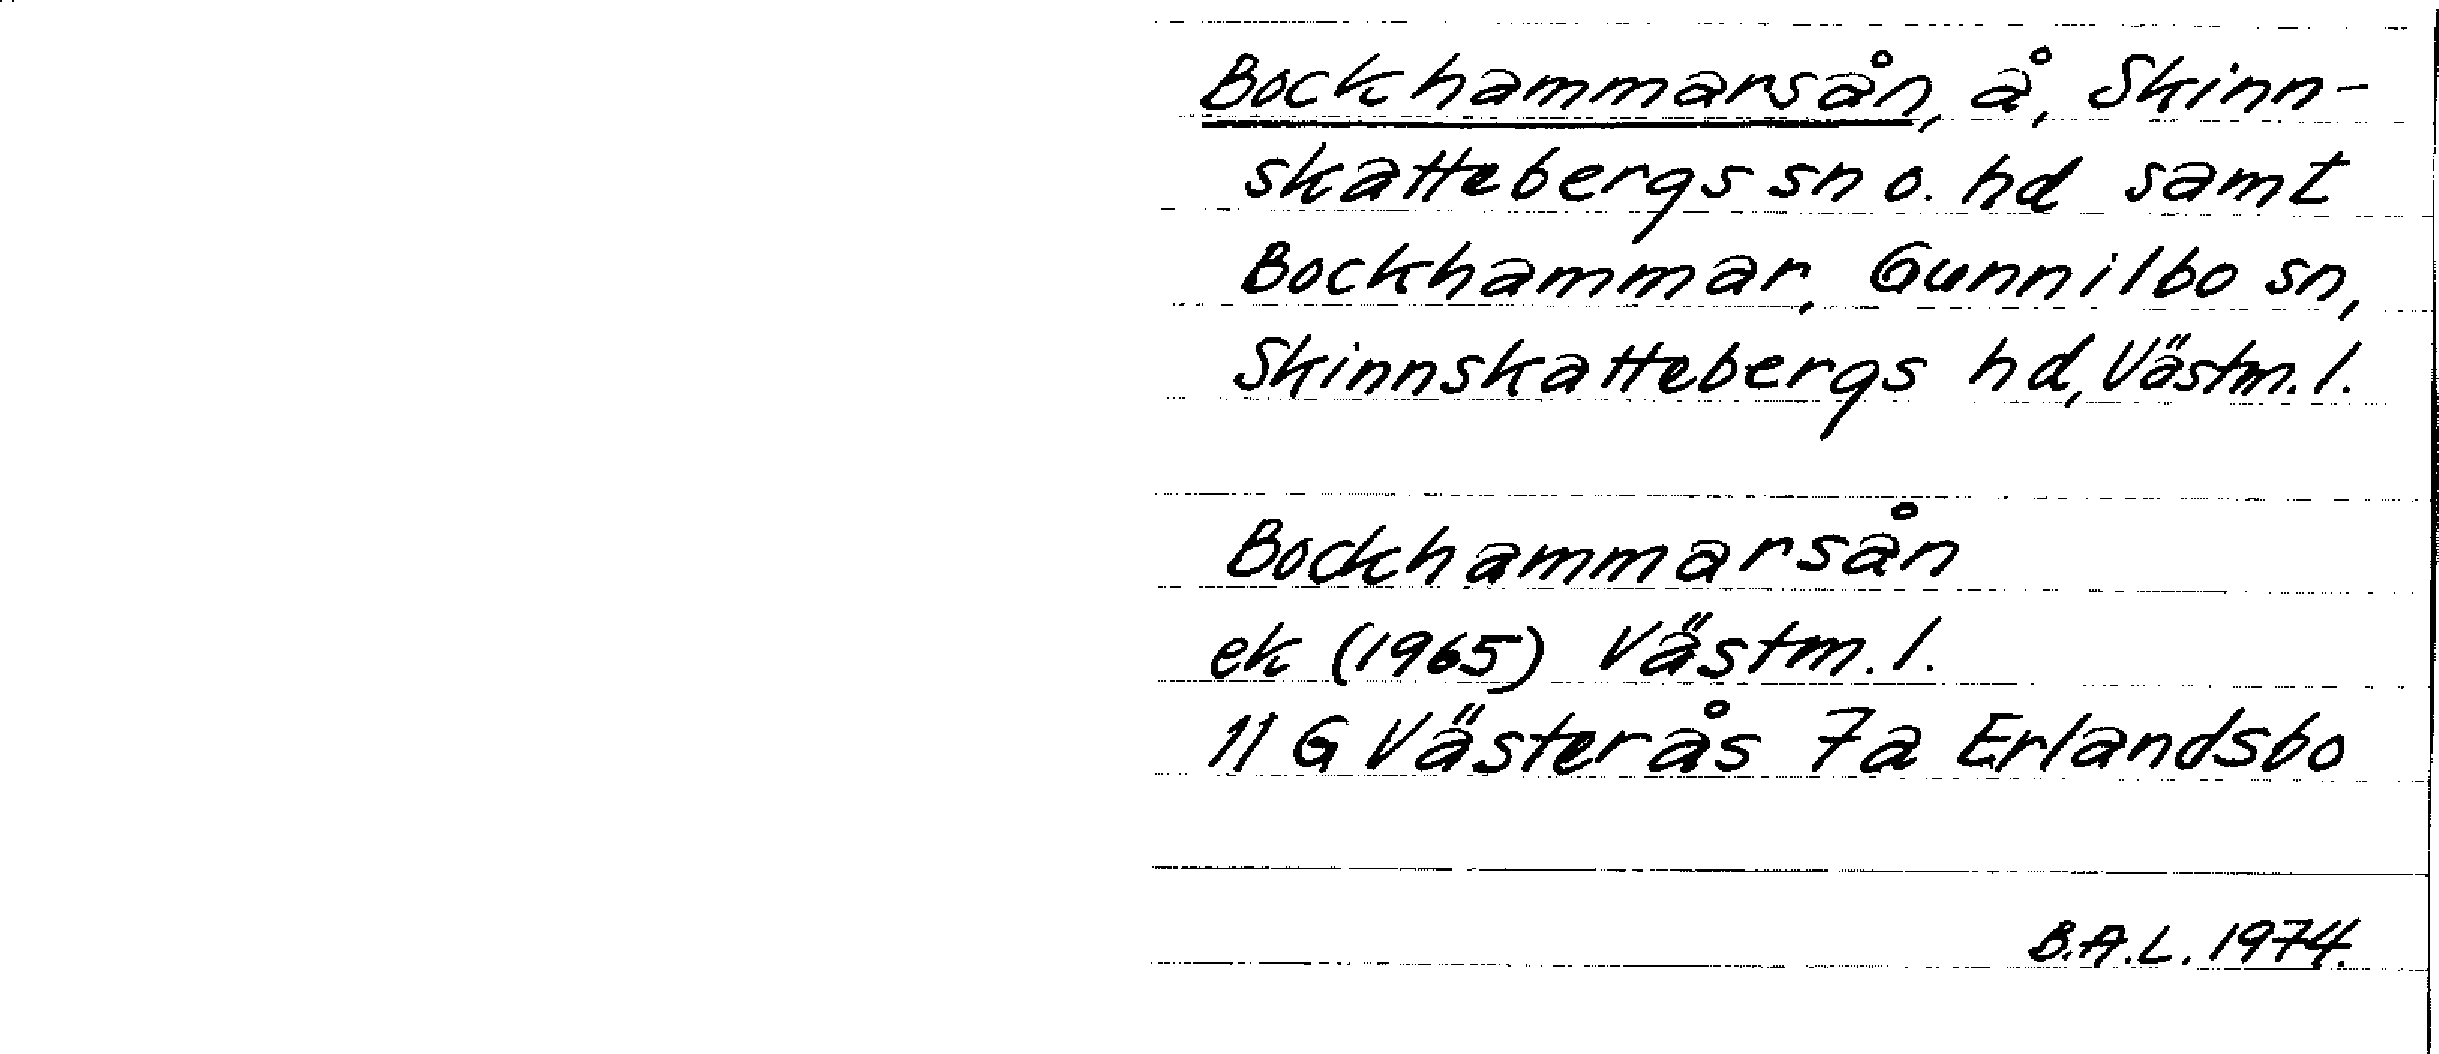 Bockhammarsån, å, Skinn-
skattebergs sn o. hd samt
Bockhammar, Gunnilbo sn,
Skinnskattebergs hd, Västm. l.
Bockhammarsån
ek (1965) Västm. l.
11 G Västerås 7a Erlandsbo
B.A.L. 1974.